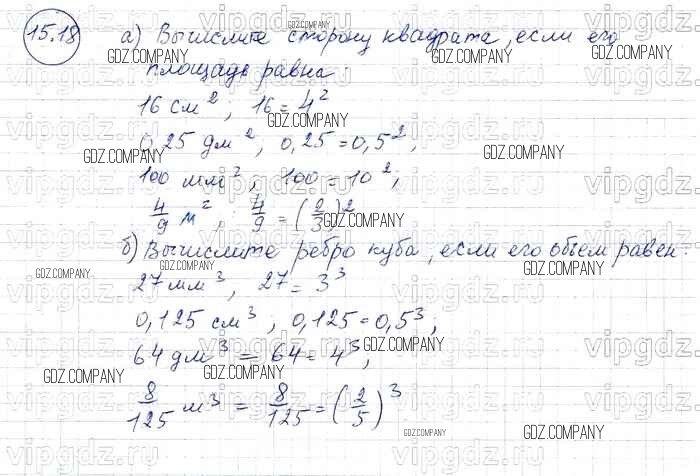 15.18 а) Вычислите сторону квадрата, если его
площадь равна:
16 см², 16 = 4²
0,25 дм², 0,25 = 0,5²,
100 мм², 100 = 10²,
4/9 м², 4/9 = (2/3)²
б) Вычислите ребро куба, если его объем равен:
27 мм³, 27 = 3³
0,125 см³, 0,125 = 0,5³;
64 дм³ = 64 = 4³,
8/125 м³ = 8/125 = (2/5)³
GDZ.COMPANY
vipgdz.ru